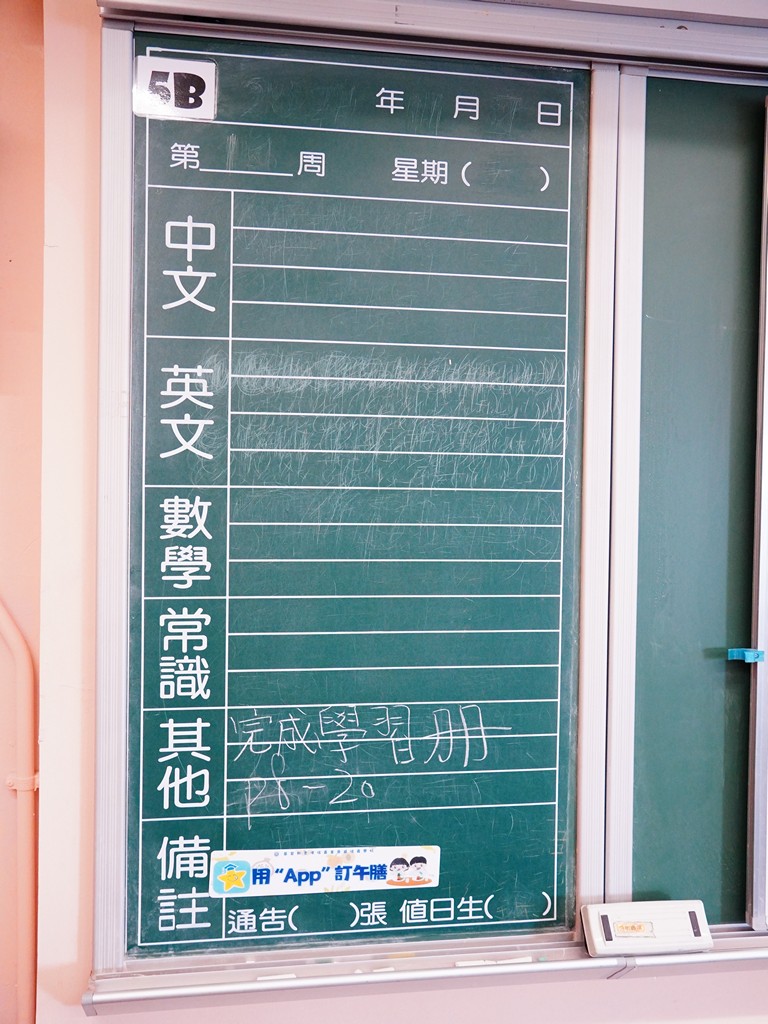 5B
年 月 日
第____周 星期( )
中文
英文
數學
常識
其他
完成學習冊
P8-20
備註
用“App”訂午膳
通告( )張 值日生( )